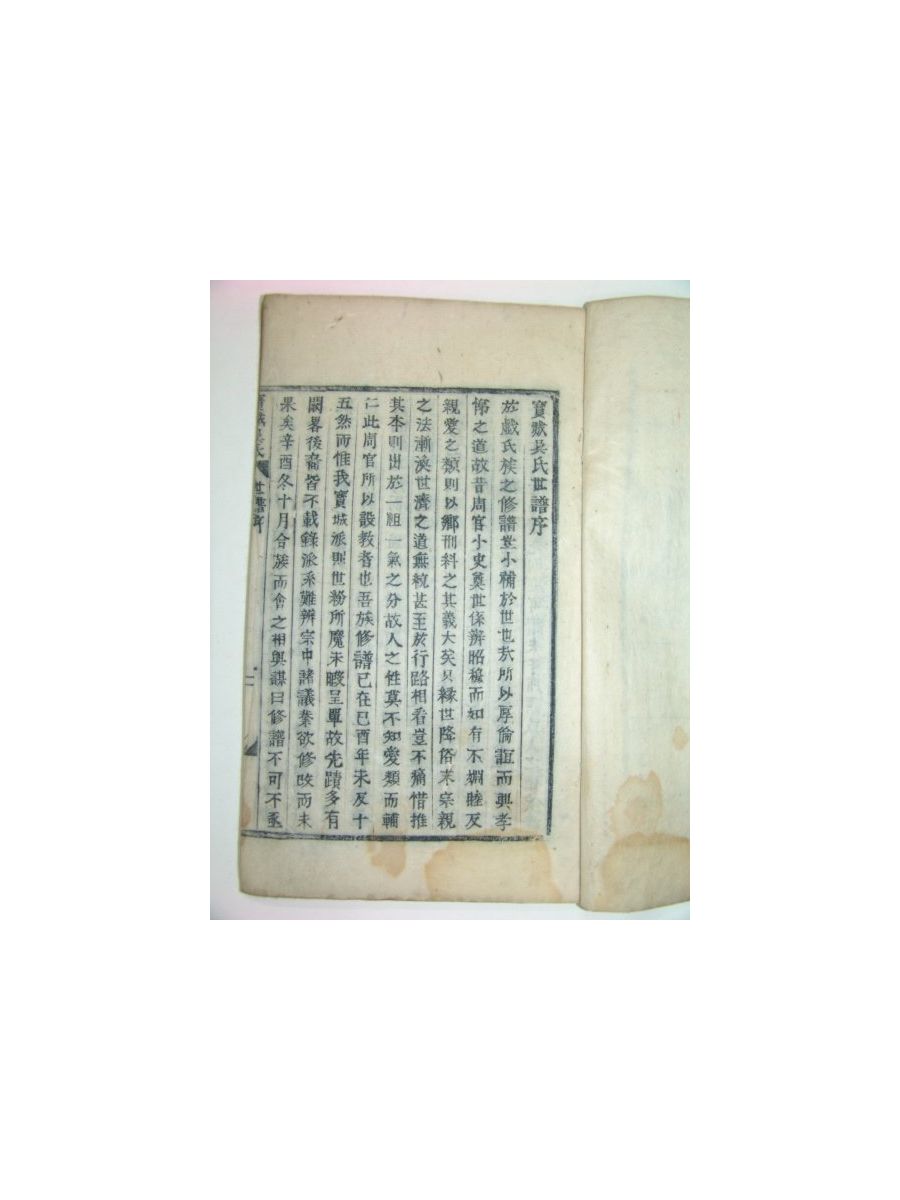 寶城吳氏世譜序
於戱氏族之修譜豈小補於世也㢤所以厚倫誼而興孝
悌之道故昔周官小史奠世係辨昭穆而如有不婣睦反
親愛之類則以鄉刑科之其義大矣只緣世降俗末宗親
之法漸渙世濟之道無統甚至於行路相看豈不痛惜推
其本則出於一祖一氣之分故人之性莫不知愛類而輔
仁此周官所以設教者也吾族修譜已在己酉年未及十
五然而惟我寶城派則世紛所魔未暇呈單故先蹟多有
闕畧後裔皆不載錄派系難辨宗中諸議業欲修改而未
果矣辛酉冬十月合族而會之相與謀曰修譜不可不亟
寶城吳氏 世譜序 二